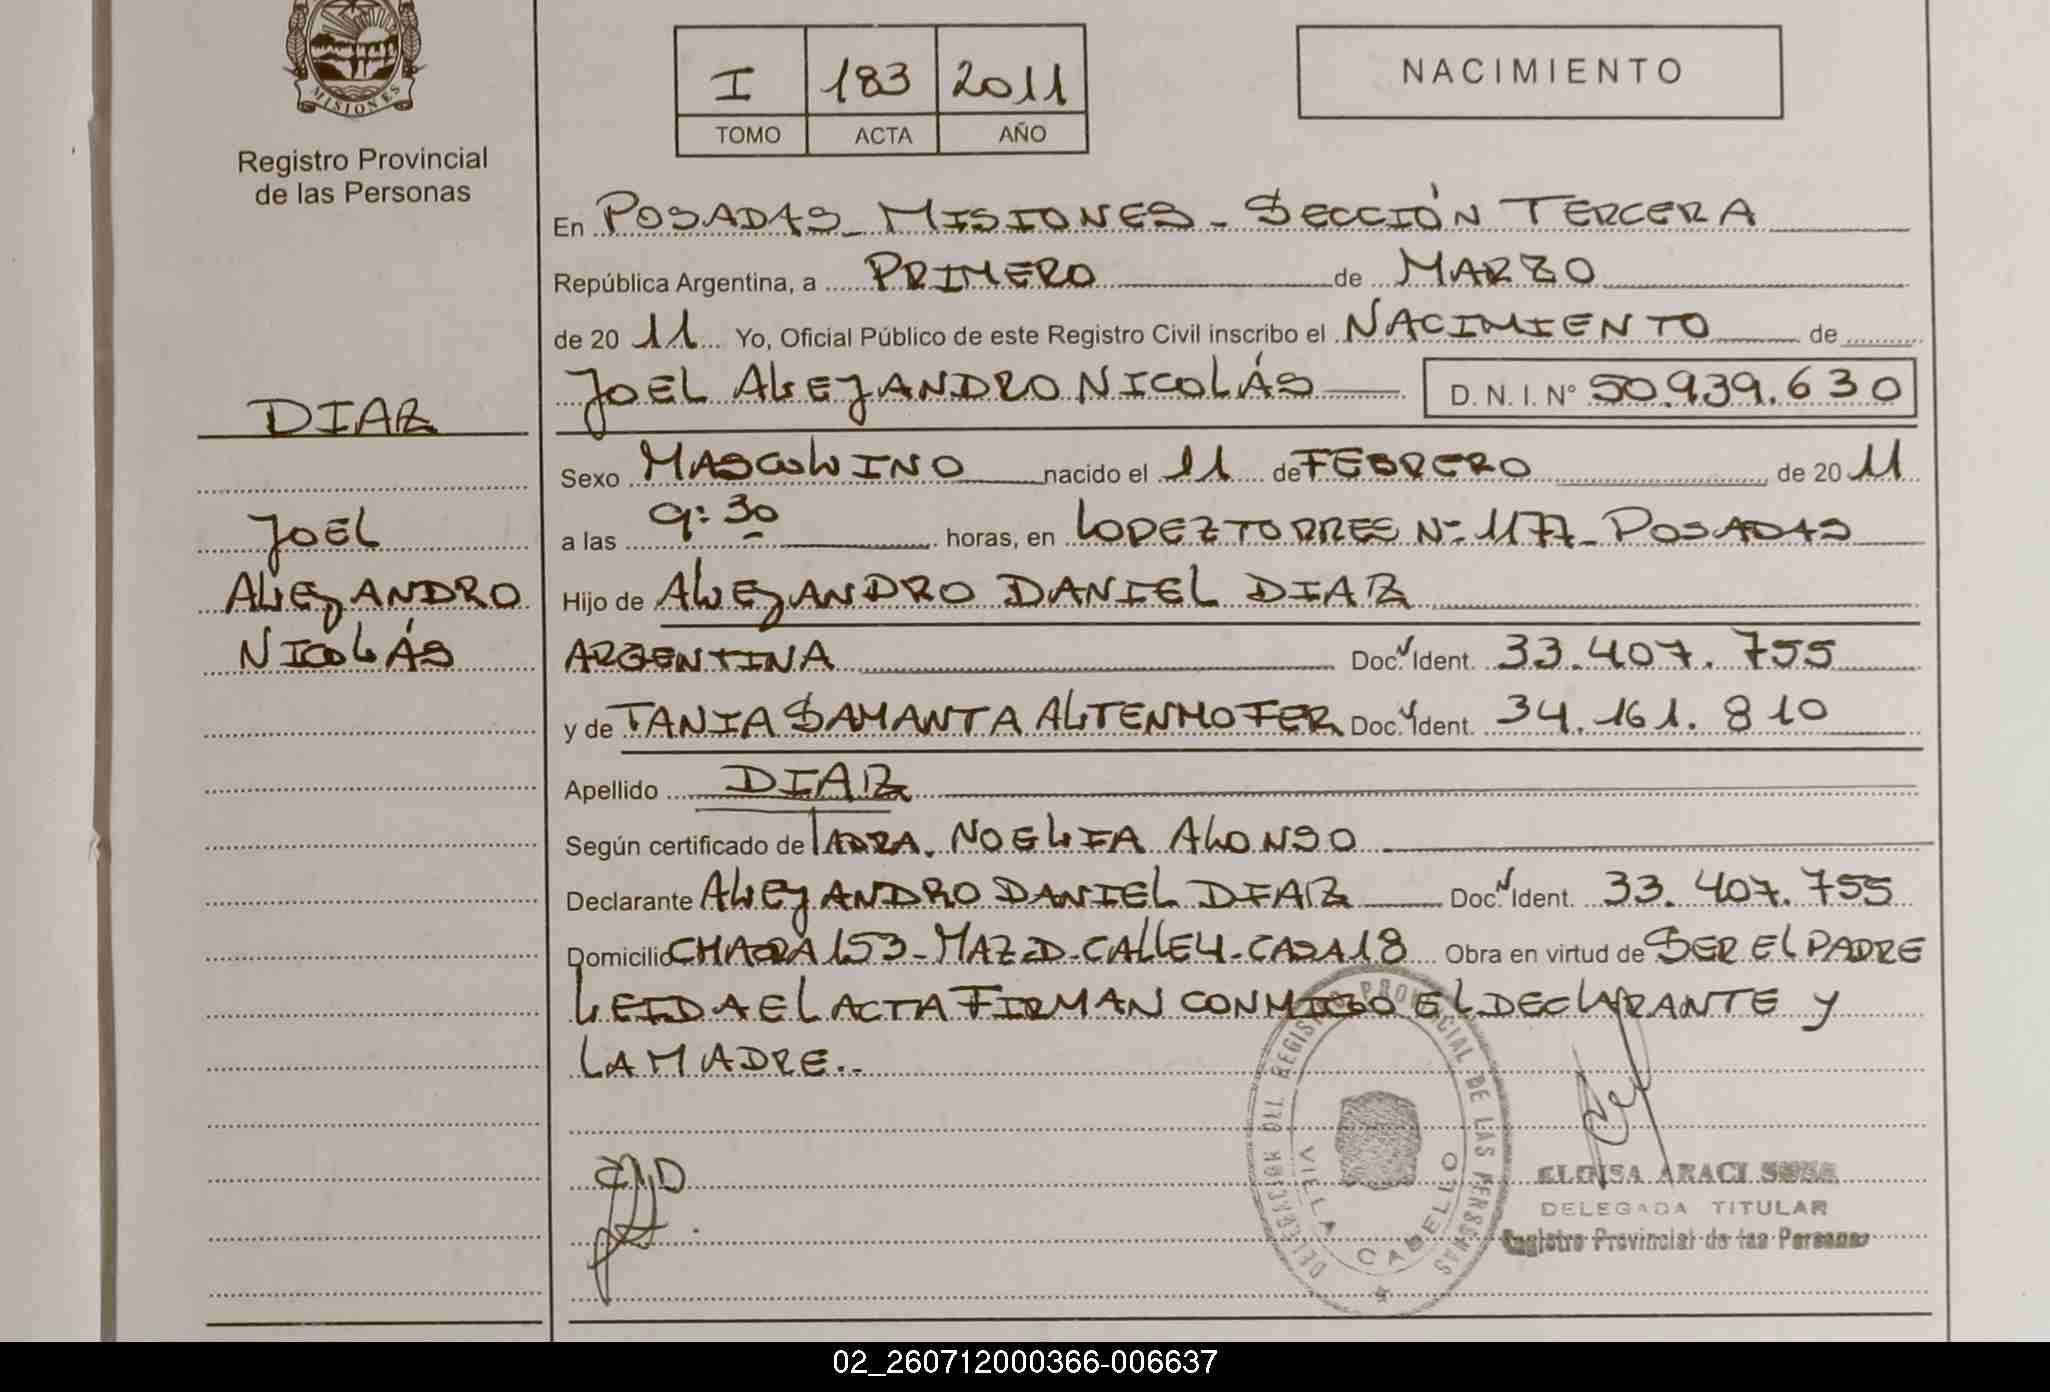 MISIONES
Registro Provincial
de las Personas
I 183 2011
TOMO ACTA AÑO
NACIMIENTO
En POSADAS - MISIONES - SECCIÓN TERCERA
República Argentina, a PRIMERO de MARZO
de 20 11 Yo, Oficial Público de este Registro Civil inscribo el NACIMIENTO de
JOEL ALEJANDRO NICOLÁS D. N. I. N° 50.939.630
DIAZ
JOEL
ALEJANDRO
NICOLÁS
Sexo MASCULINO nacido el 11 de FEBRERO de 20 11
a las 9:30 horas, en LOPEZ TORRES N° 1177 - POSADAS
Hijo de ALEJANDRO DANIEL DIAZ
ARGENTINA Doc. Ident. 33.407.755
y de TANIA SAMANTA ALTENHOFER Doc. Ident. 34.161.810
Apellido DIAZ
Según certificado de NOELIA ALONSO
Declarante ALEJANDRO DANIEL DIAZ Doc. Ident. 33.407.755
Domicilio CHACRA 153 - MAZ D - CALLE 4 - CASA 18 Obra en virtud de SER EL PADRE
LEIDA EL ACTA FIRMAN CONMIGO EL DECLARANTE Y
LA MADRE..
REGISTRO PROVINCIAL DE LAS PERSONAS
VILLA CABELLO
ELOISA ARACI SOSA
DELEGADA TITULAR
Registro Provincial de las Personas
02_260712000366-006637